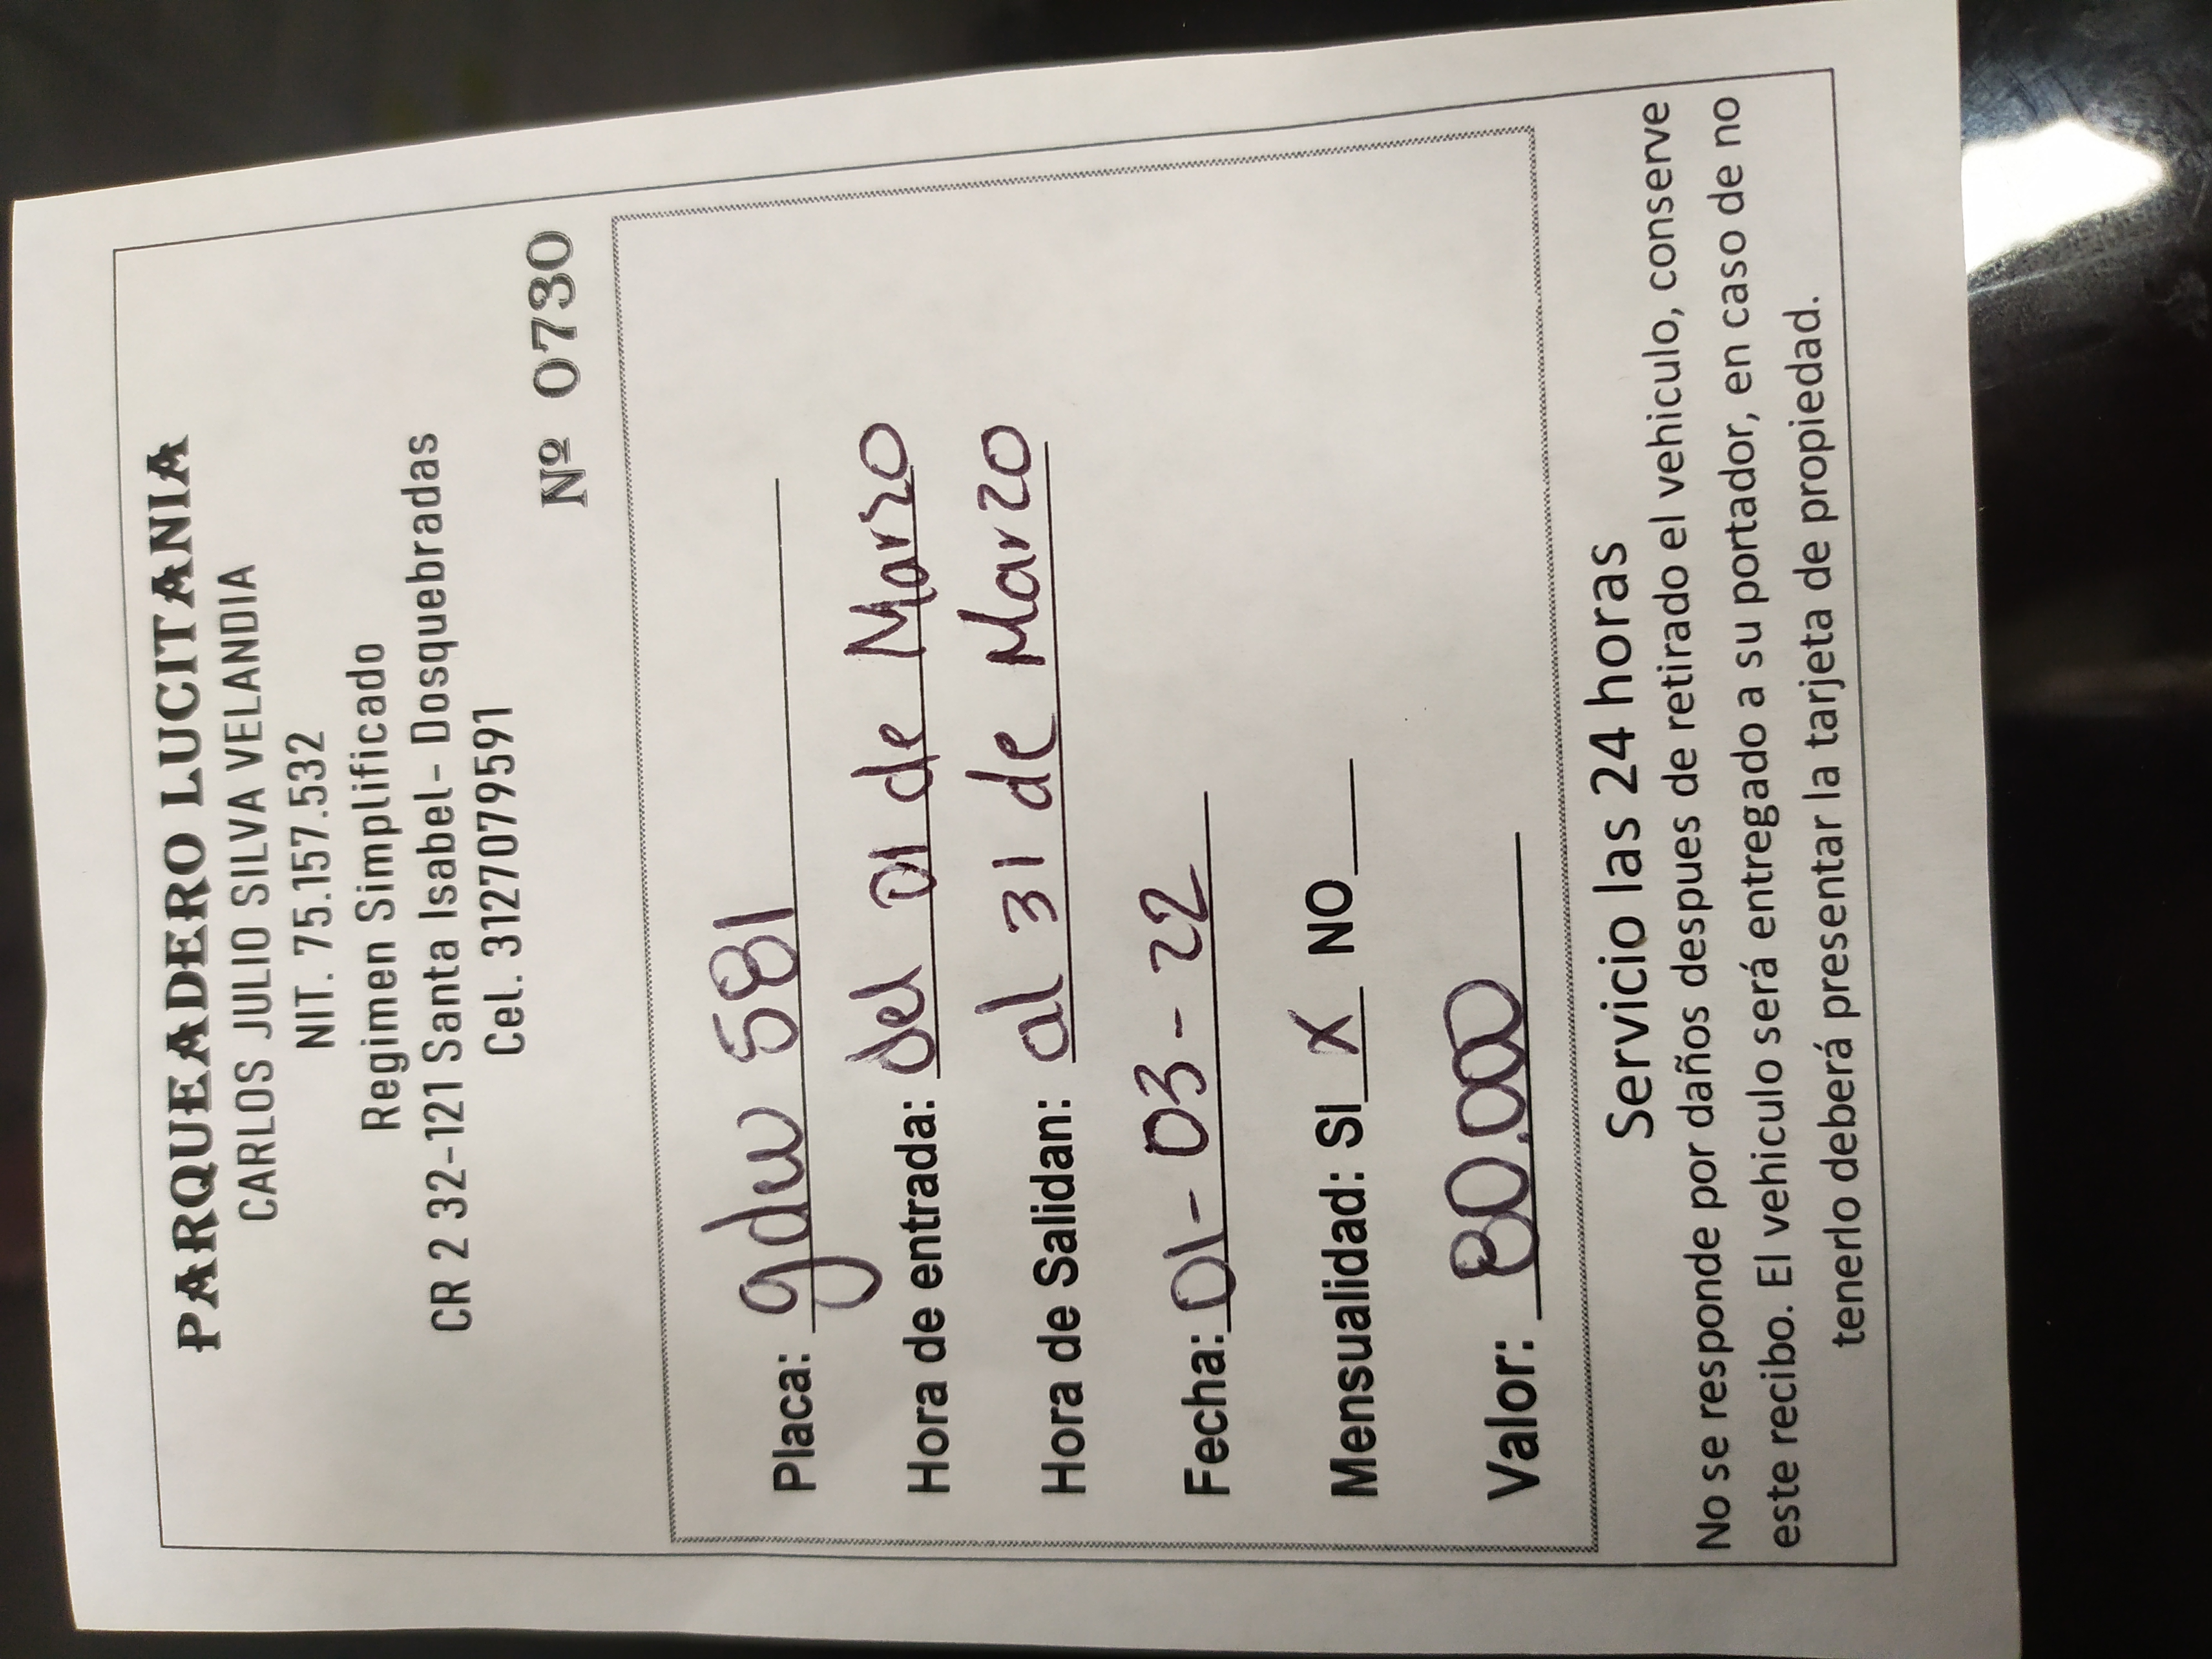 PARQUEADERO LUCITANIA
CARLOS JULIO SILVA VELANDIA
NIT. 75.157.532
Regimen Simplificado
CR 2 32-121 Santa Isabel- Dosquebradas
Cel. 3127079591
Nº 0730
Placa: gdw 581
Hora de entrada: del 01 de Marzo
Hora de Salidan: al 31 de Marzo
Fecha: 01-03-22
Mensualidad: SI X NO
Valor: 80.000
Servicio las 24 horas
No se responde por daños despues de retirado el vehiculo, conserve
este recibo. El vehiculo será entregado a su portador, en caso de no
tenerlo deberá presentar la tarjeta de propiedad.